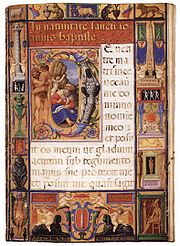 In natiuitate sancti io
annis baptiste
E uen
tre ma
tris me
uoca
me do
nomi
meo
et po
os meum ut gladium
acutum sub tegumento
manus sue protexit me
et posuit me quasi sagit